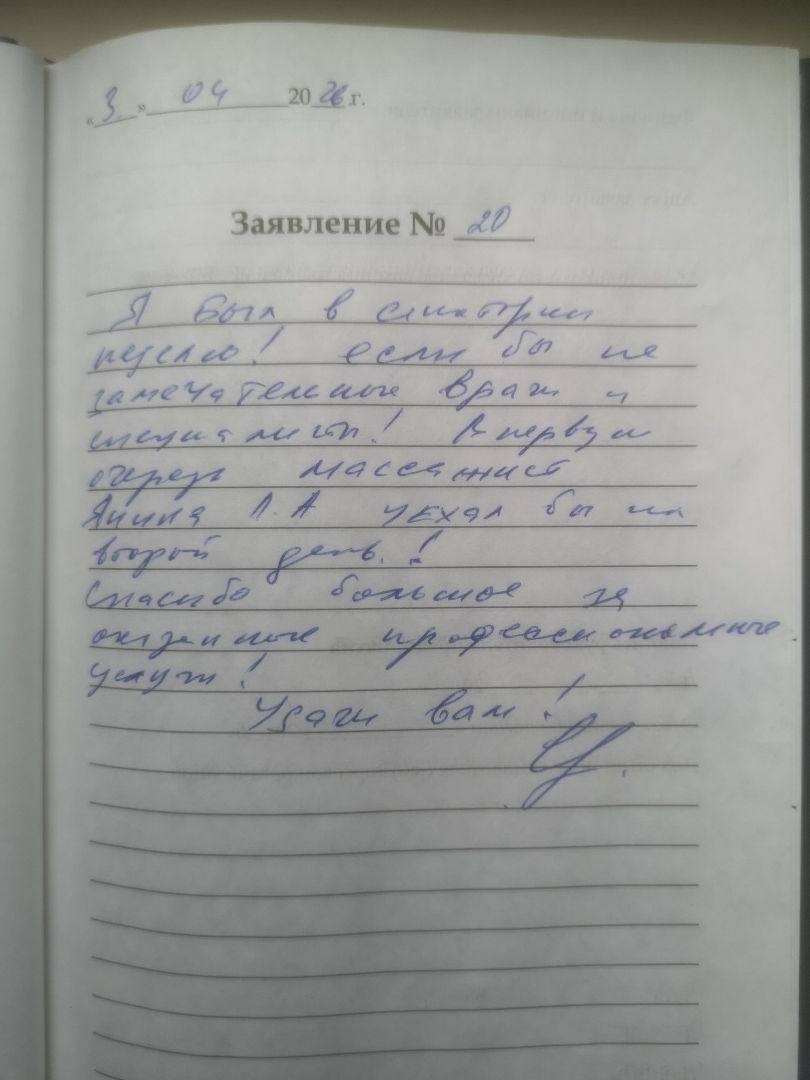 «3.» 04 2026 г.
Заявление № 20
Я был в санатории
неделю! если бы не
замечательные врачи и
специалисты! В первую
очередь массажист
Янина Л.А уехал бы на
второй день.!
Спасибо большое за
оказанные профессиональные
услуги!
Удачи вам!